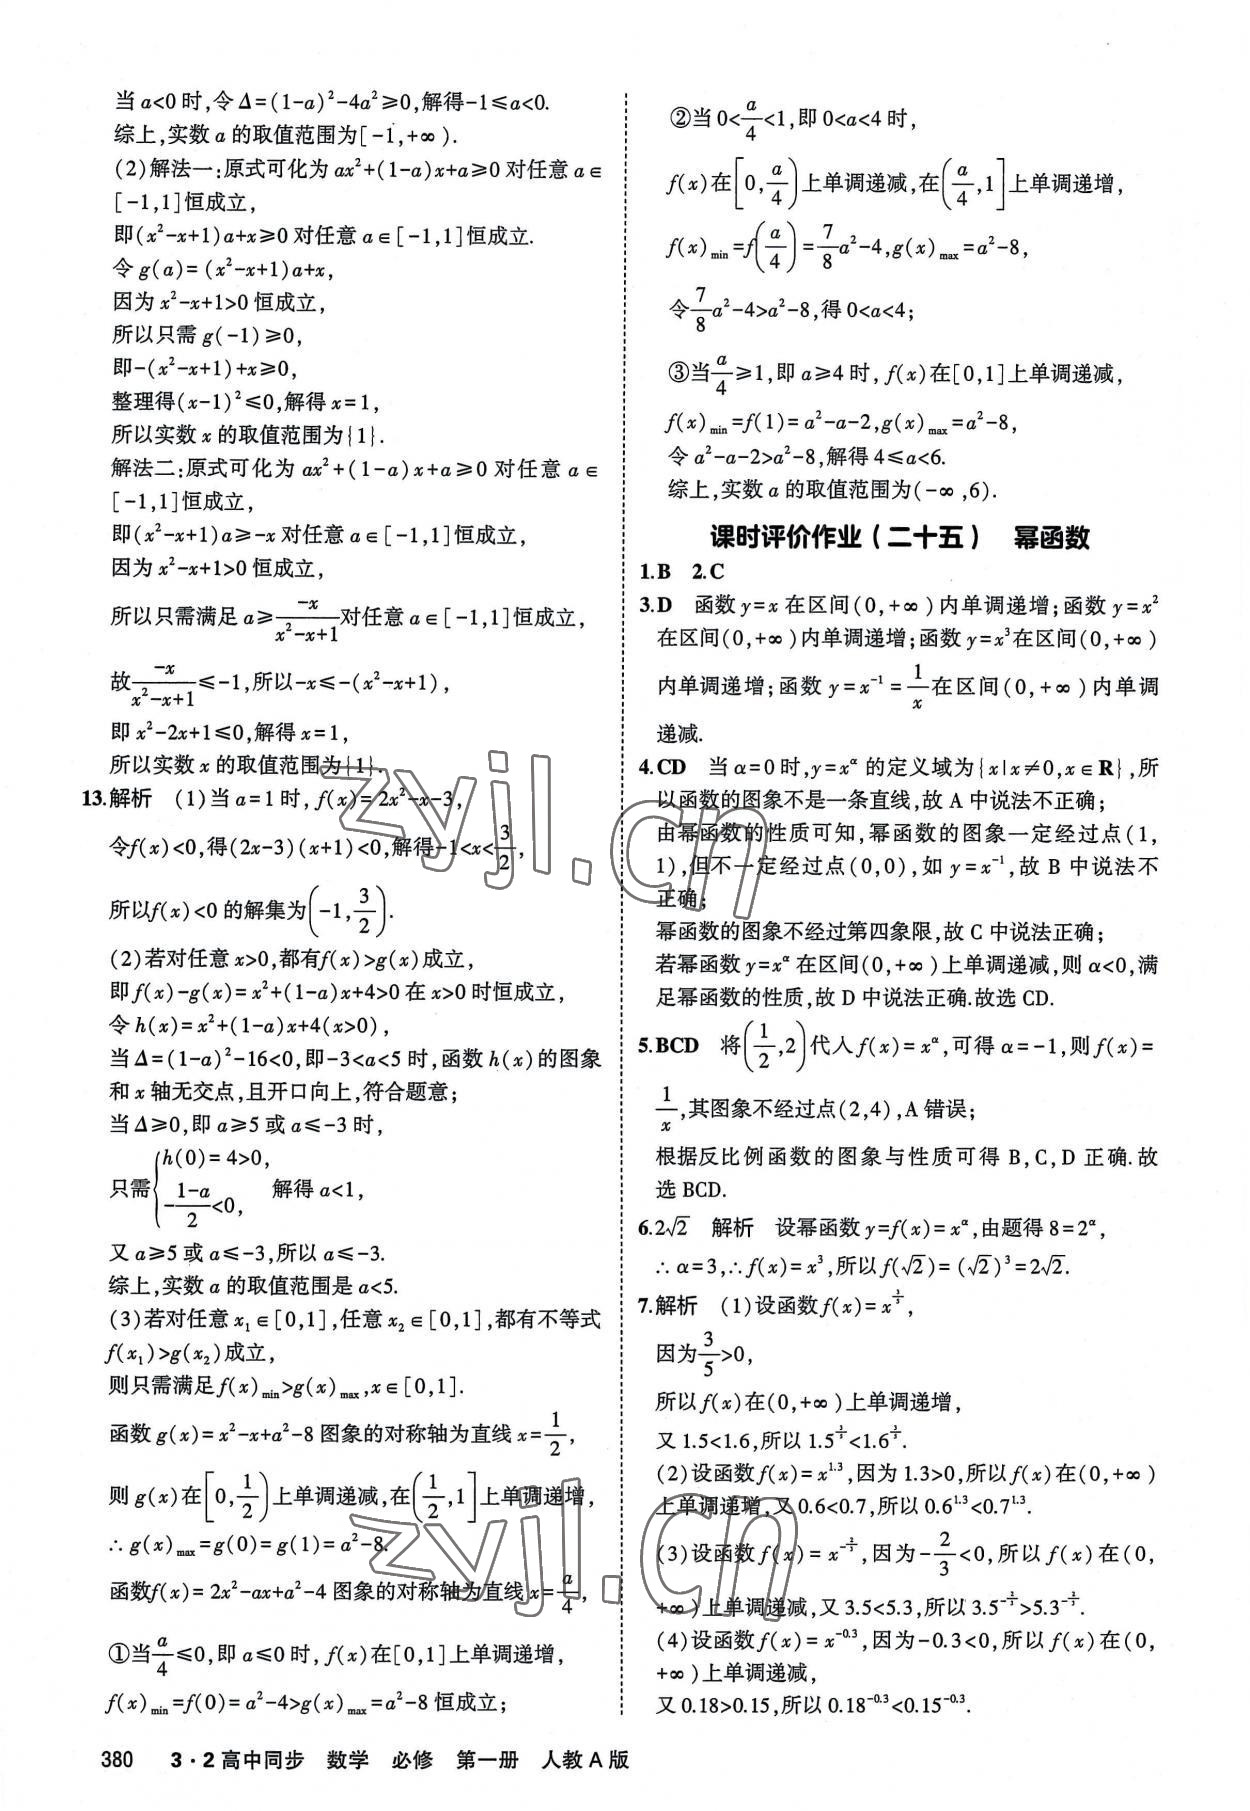 当 a<0 时,令 Δ=(1-a)²-4a²≥0,解得-1≤a<0.
综上,实数 a 的取值范围为[-1,+∞).
(2)解法一:原式可化为 ax²+(1-a)x+a≥0 对任意 a∈
[-1,1]恒成立,
即(x²-x+1)a+x≥0 对任意 a∈[-1,1]恒成立.
令 g(a)=(x²-x+1)a+x,
因为 x²-x+1>0 恒成立,
所以只需 g(-1)≥0,
即-(x²-x+1)+x≥0,
整理得(x-1)²≤0,解得 x=1,
所以实数 x 的取值范围为{1}.
解法二:原式可化为 ax²+(1-a)x+a≥0 对任意 a∈
[-1,1]恒成立,
即(x²-x+1)a≥-x 对任意 a∈[-1,1]恒成立,
因为 x²-x+1>0 恒成立,
所以只需满足 a≥\frac{-x}{x²-x+1}对任意 a∈[-1,1]恒成立,
故\frac{-x}{x²-x+1}≤-1,所以-x≤-(x²-x+1),
即 x²-2x+1≤0,解得 x=1,
所以实数 x 的取值范围为{1}.
13.解析 (1)当 a=1 时,f(x)=2x²-x-3,
令f(x)<0,得(2x-3)(x+1)<0,解得-1<x<\frac{3}{2},
所以f(x)<0 的解集为(-1,\frac{3}{2}).
(2)若对任意 x>0,都有f(x)>g(x)成立,
即 f(x)-g(x)=x²+(1-a)x+4>0 在 x>0 时恒成立,
令 h(x)=x²+(1-a)x+4(x>0),
当 Δ=(1-a)²-16<0,即-3<a<5 时,函数 h(x)的图象
和 x 轴无交点,且开口向上,符合题意;
当 Δ≥0,即 a≥5 或 a≤-3 时,
只需{h(0)=4>0, -\frac{1-a}{2}<0, 解得 a<1,
又 a≥5 或 a≤-3,所以 a≤-3.
综上,实数 a 的取值范围是 a<5.
(3)若对任意 x₁∈[0,1],任意 x₂∈[0,1],都有不等式
f(x₁)>g(x₂)成立,
则只需满足 f(x)min>g(x)max,x∈[0,1].
函数 g(x)=x²-x+a²-8 图象的对称轴为直线 x=\frac{1}{2},
则 g(x)在[0,\frac{1}{2})上单调递减,在(\frac{1}{2},1]上单调递增,
∴g(x)max=g(0)=g(1)=a²-8.
函数f(x)=2x²-ax+a²-4 图象的对称轴为直线 x=\frac{a}{4},
①当\frac{a}{4}≤0,即 a≤0 时,f(x)在[0,1]上单调递增,
f(x)min=f(0)=a²-4>g(x)max=a²-8 恒成立;
②当 0<\frac{a}{4}<1,即 0<a<4 时,
f(x)在[0,\frac{a}{4})上单调递减,在(\frac{a}{4},1]上单调递增,
f(x)min=f(\frac{a}{4})=\frac{7}{8}a²-4,g(x)max=a²-8,
令\frac{7}{8}a²-4>a²-8,得 0<a<4;
③当\frac{a}{4}≥1,即 a≥4 时,f(x)在[0,1]上单调递减,
f(x)min=f(1)=a²-a-2,g(x)max=a²-8,
令 a²-a-2>a²-8,解得 4≤a<6.
综上,实数 a 的取值范围为(-∞,6).
课时评价作业(二十五) 幂函数
1.B 2.C
3.D 函数 y=x 在区间(0,+∞)内单调递增;函数 y=x²
在区间(0,+∞)内单调递增;函数 y=x³在区间(0,+∞)
内单调递增;函数 y=x⁻¹=\frac{1}{x}在区间(0,+∞)内单调
递减.
4.CD 当 α=0 时,y=x^α 的定义域为{x|x≠0,x∈R},所
以函数的图象不是一条直线,故 A 中说法不正确;
由幂函数的性质可知,幂函数的图象一定经过点(1,
1),但不一定经过点(0,0),如 y=x⁻¹,故 B 中说法不
正确;
幂函数的图象不经过第四象限,故 C 中说法正确;
若幂函数 y=x^α 在区间(0,+∞)上单调递减,则 α<0,满
足幂函数的性质,故 D 中说法正确.故选 CD.
5.BCD 将(\frac{1}{2},2)代入 f(x)=x^α,可得 α=-1,则 f(x)=
\frac{1}{x},其图象不经过点(2,4),A 错误;
根据反比例函数的图象与性质可得 B,C,D 正确.故
选 BCD.
6.2√2 解析 设幂函数 y=f(x)=x^α,由题得 8=2^α,
∴α=3,∴f(x)=x³,所以 f(√2)=(√2)³=2√2.
7.解析 (1)设函数f(x)=x^{\frac{3}{5}},
因为\frac{3}{5}>0,
所以 f(x)在(0,+∞)上单调递增,
又 1.5<1.6,所以 1.5^{\frac{3}{5}}<1.6^{\frac{3}{5}}.
(2)设函数f(x)=x^{1.3},因为 1.3>0,所以f(x)在(0,+∞)
上单调递增,又 0.6<0.7,所以 0.6^{1.3}<0.7^{1.3}.
(3)设函数 f(x)=x^{-\frac{2}{3}},因为-\frac{2}{3}<0,所以 f(x)在(0,
+∞)上单调递减,又 3.5<5.3,所以 3.5^{-\frac{2}{3}}>5.3^{-\frac{2}{3}}.
(4)设函数 f(x)=x^{-0.3},因为-0.3<0,所以 f(x)在(0,
+∞)上单调递减,
又 0.18>0.15,所以 0.18^{-0.3}<0.15^{-0.3}.
380 3·2高中同步 数学 必修 第一册 人教 A 版
zyjl.cn
zyjl.cn